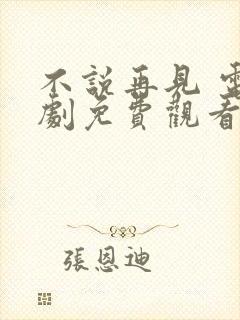 不說再見 電
劇免費觀看
張恩迪